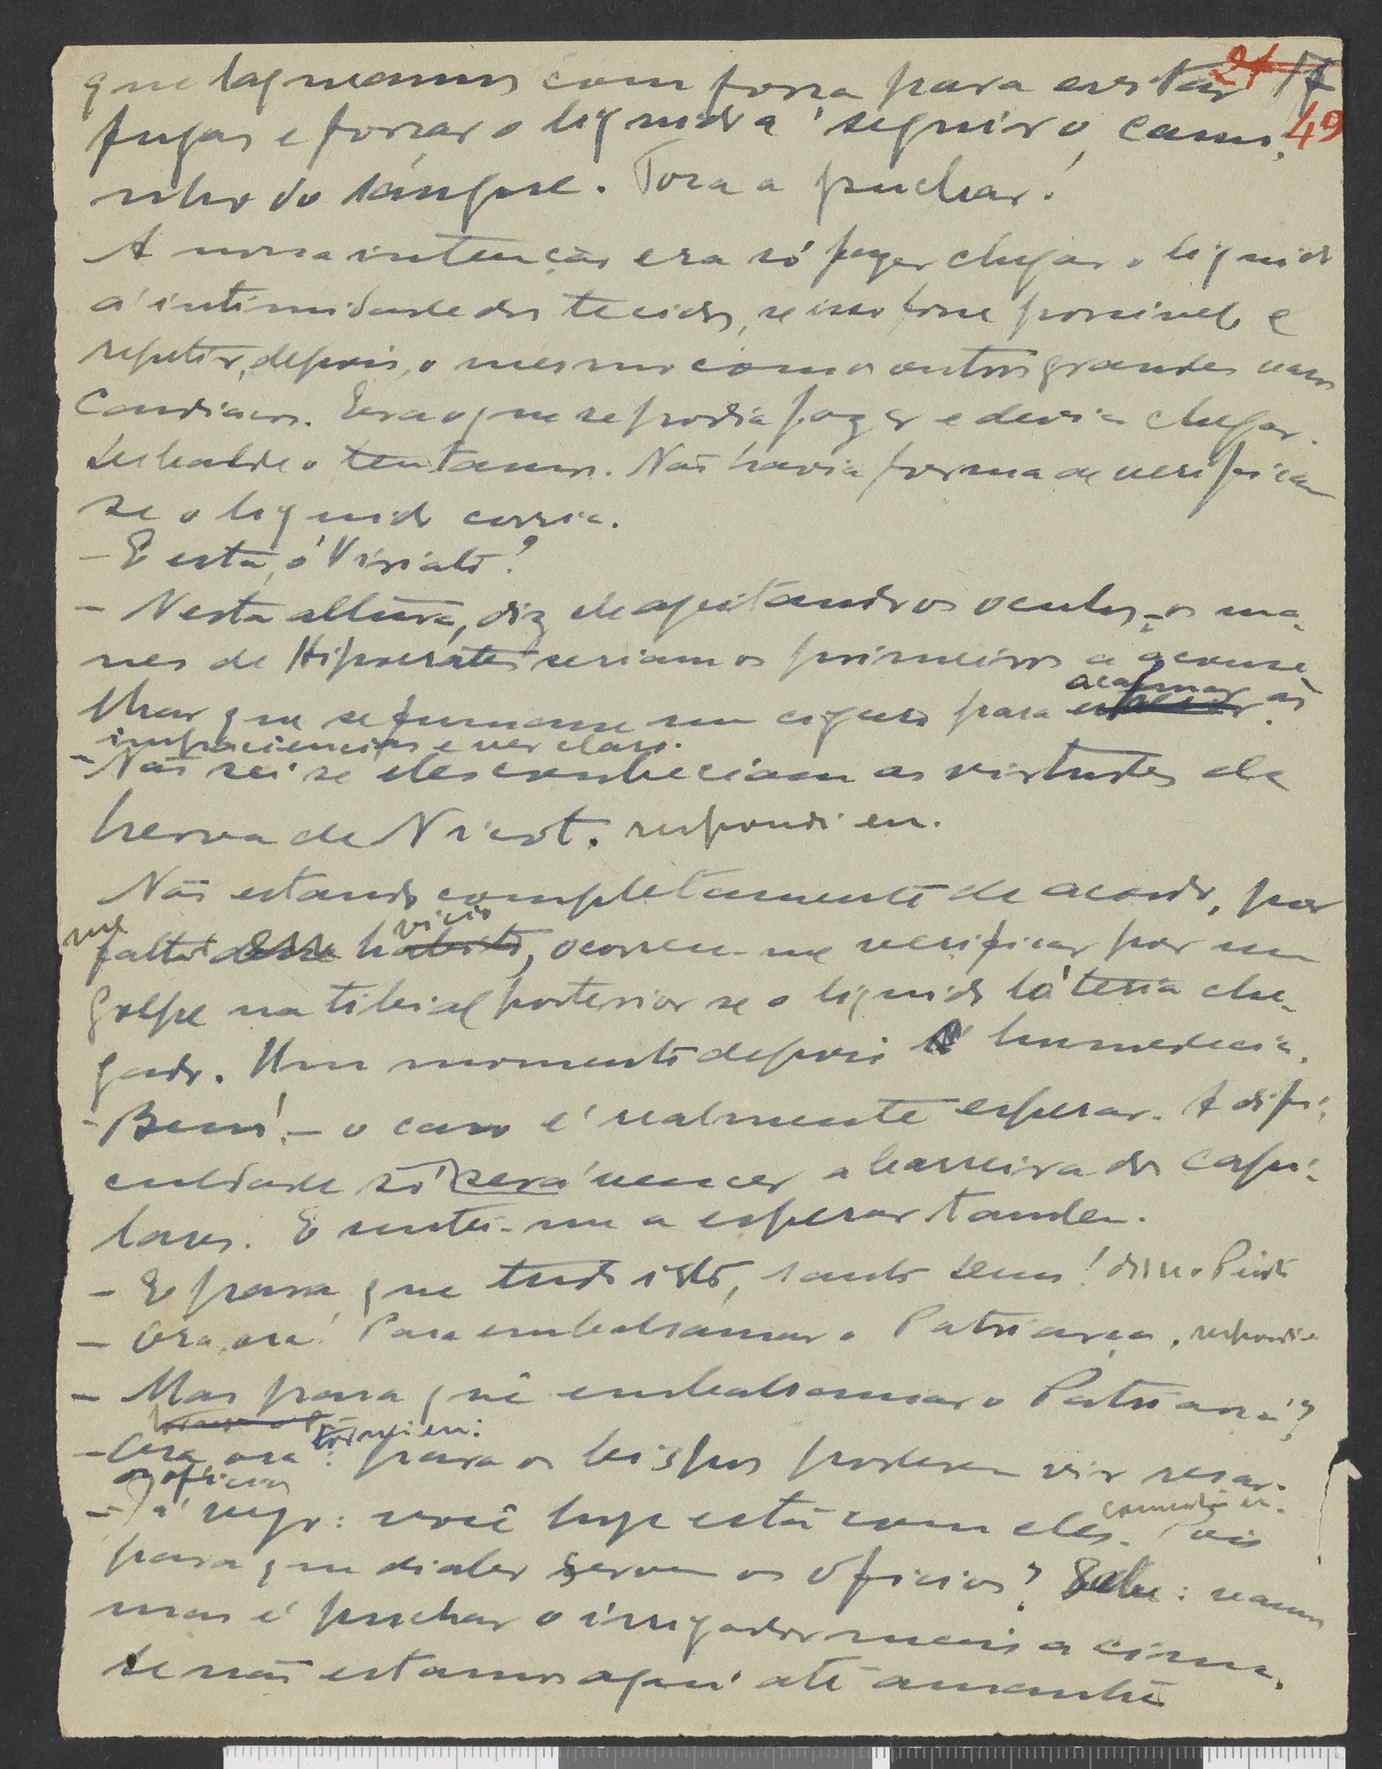 21 17
49
que laqueamos com força para evitar
fugas e forçar o liquido a seguir o cami-
nho do sangue. Toca a puchar!
A nossa intenção era só fazer chegar o liquido
á intimidade dos tecidos, se isso fosse possivel, e
repetir, depois, o mesmo com os outros grandes vasos
Cardiacos. Era o que se podia fazer e devia chegar.
Debalde o tentamos. Não havia forma de verificar
se o liquido corria.
- E esta, ó Viriato?
- Nesta altura, diz ele ageitando os oculos - os ma-
nes de Hipocrates seriam os primeiros a aconse
lhar que se fumasse um cigarro para acalmar as
impaciencias e ver claro.
- Não sei se eles conheciam as virtudes da
herva de Nicot. respondi eu.
Não estando completamente de acordo, por
me faltar esse habito vicio, ocorreu-me verificar por um
golpe na tibial posterior se o liquido lá teria che-
gado. Um momento depois humedecia.
- Bem! - o caso é realmente esperar. A difi-
culdade só será vencer a barreira dos capi-
lares. E sentei-me a esperar tambem.
- E para que tudo isto, santo Deus! disse o Pinto
- Ora, ora! Para embalsamar o Patriarca, respondi
- Mas para quê embalsamar o Patriarca?
- Ora ora: tornei eu: para os bispos poderem vir resar
os oficios
- Já vejo: você hoje está com eles. comentou
para que diabo servem os Oficios? : vamos
mas é puchar o irrigador mais a cima,
se não estamos aqui até amanhã